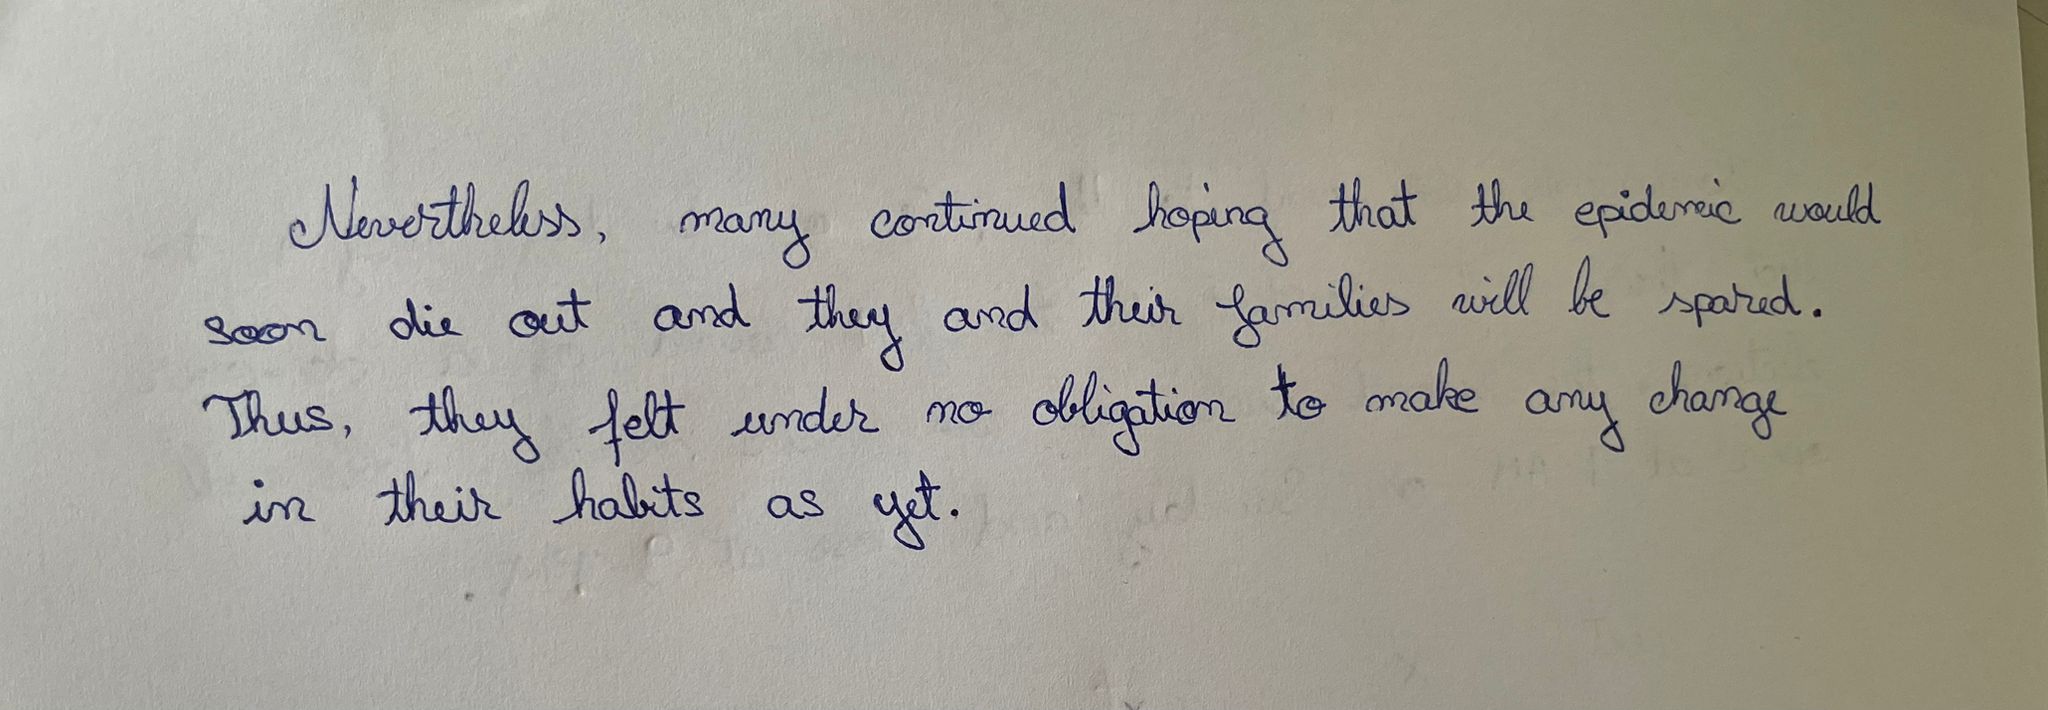 Nevertheless, many continued hoping that the epidemic would
soon die out and they and their families will be spared.
Thus, they felt under no obligation to make any change
in their habits as yet.